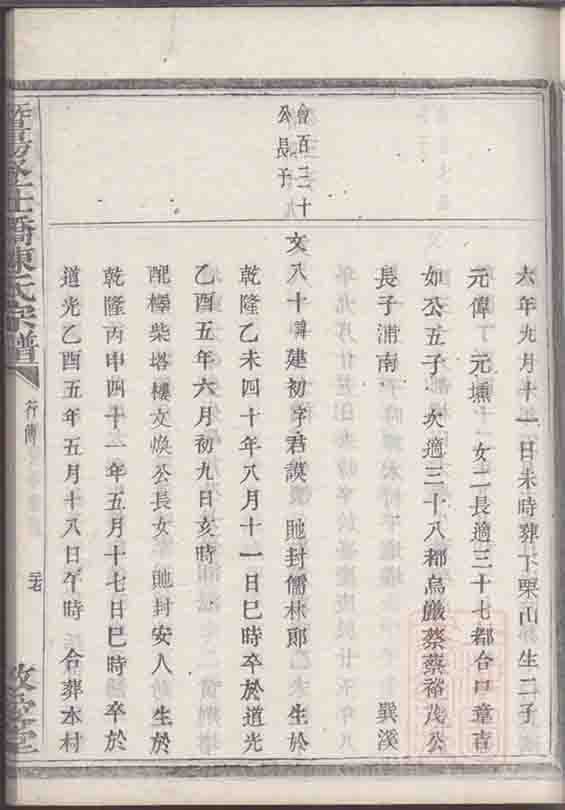 六年九月十一日未時葬下栗山 生二子
元俾 元壎 女二長適三十七都合口章吉
如公五子 次適三十八都烏巖蔡蔡裕茂公
長子浦南 巽溪
會百三十
公長子
文八十諱建初字君謨 貤封儒林郎 生於
乾隆乙未四十年八月十一日巳時卒於道光
乙酉五年六月初九日亥時
配檡柴塔樓文煥公長女 貤封安人 生於
乾隆丙申四十一年五月十七日巳時卒於
道光乙酉五年五月十八日午時 合葬本村
橋陳氏宗譜
行傳